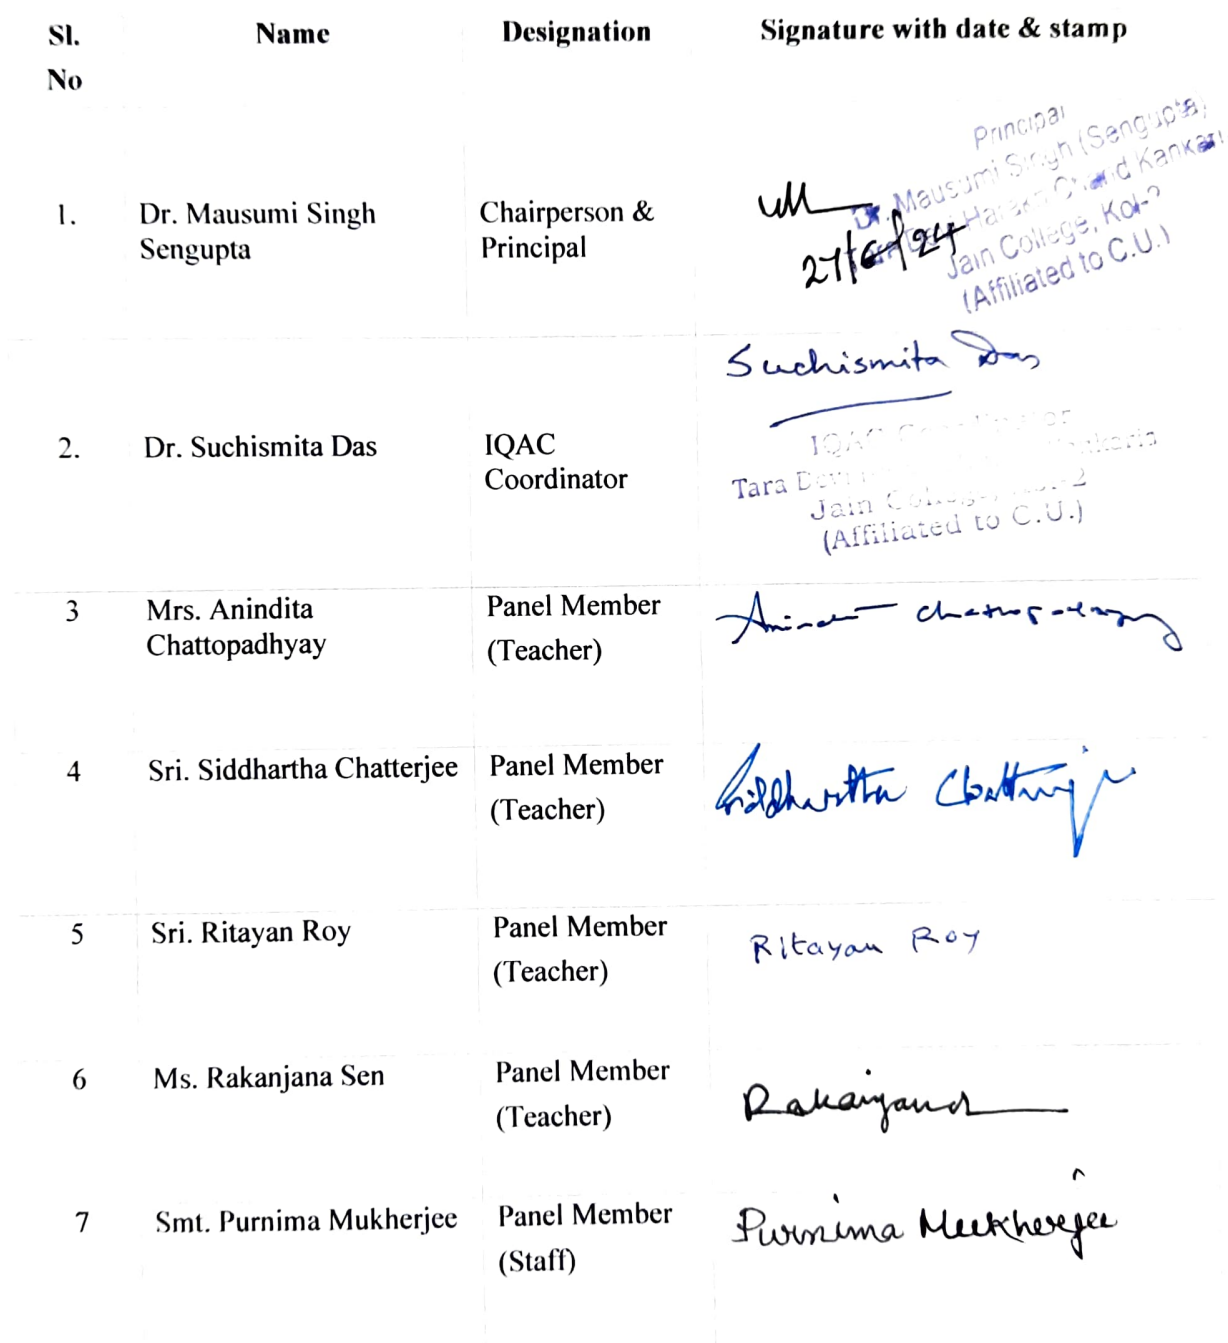 Sl. No
Name
Designation
Signature with date & stamp
1.
Dr. Mausumi Singh
Sengupta
Chairperson &
Principal
27/6/24
Principal
Dr. Mausumi Singh (Sengupta)
Chand Kankaria
Jain College, Kol-
(Affiliated to C.U.)
Suchismita Das
2.
Dr. Suchismita Das
IQAC
Coordinator
IQAC Coordinator
Tara Devi Kankaria
Jain College, Kol-2
(Affiliated to C.U.)
3
Mrs. Anindita
Chattopadhyay
Panel Member
(Teacher)
Anindita Chattopadhyay
4
Sri. Siddhartha Chatterjee
Panel Member
(Teacher)
Siddhartha Chatterjee
5
Sri. Ritayan Roy
Panel Member
(Teacher)
Ritayan Roy
6
Ms. Rakanjana Sen
Panel Member
(Teacher)
Rakanjana
7
Smt. Purnima Mukherjee
Panel Member
(Staff)
Purnima Mukherjee